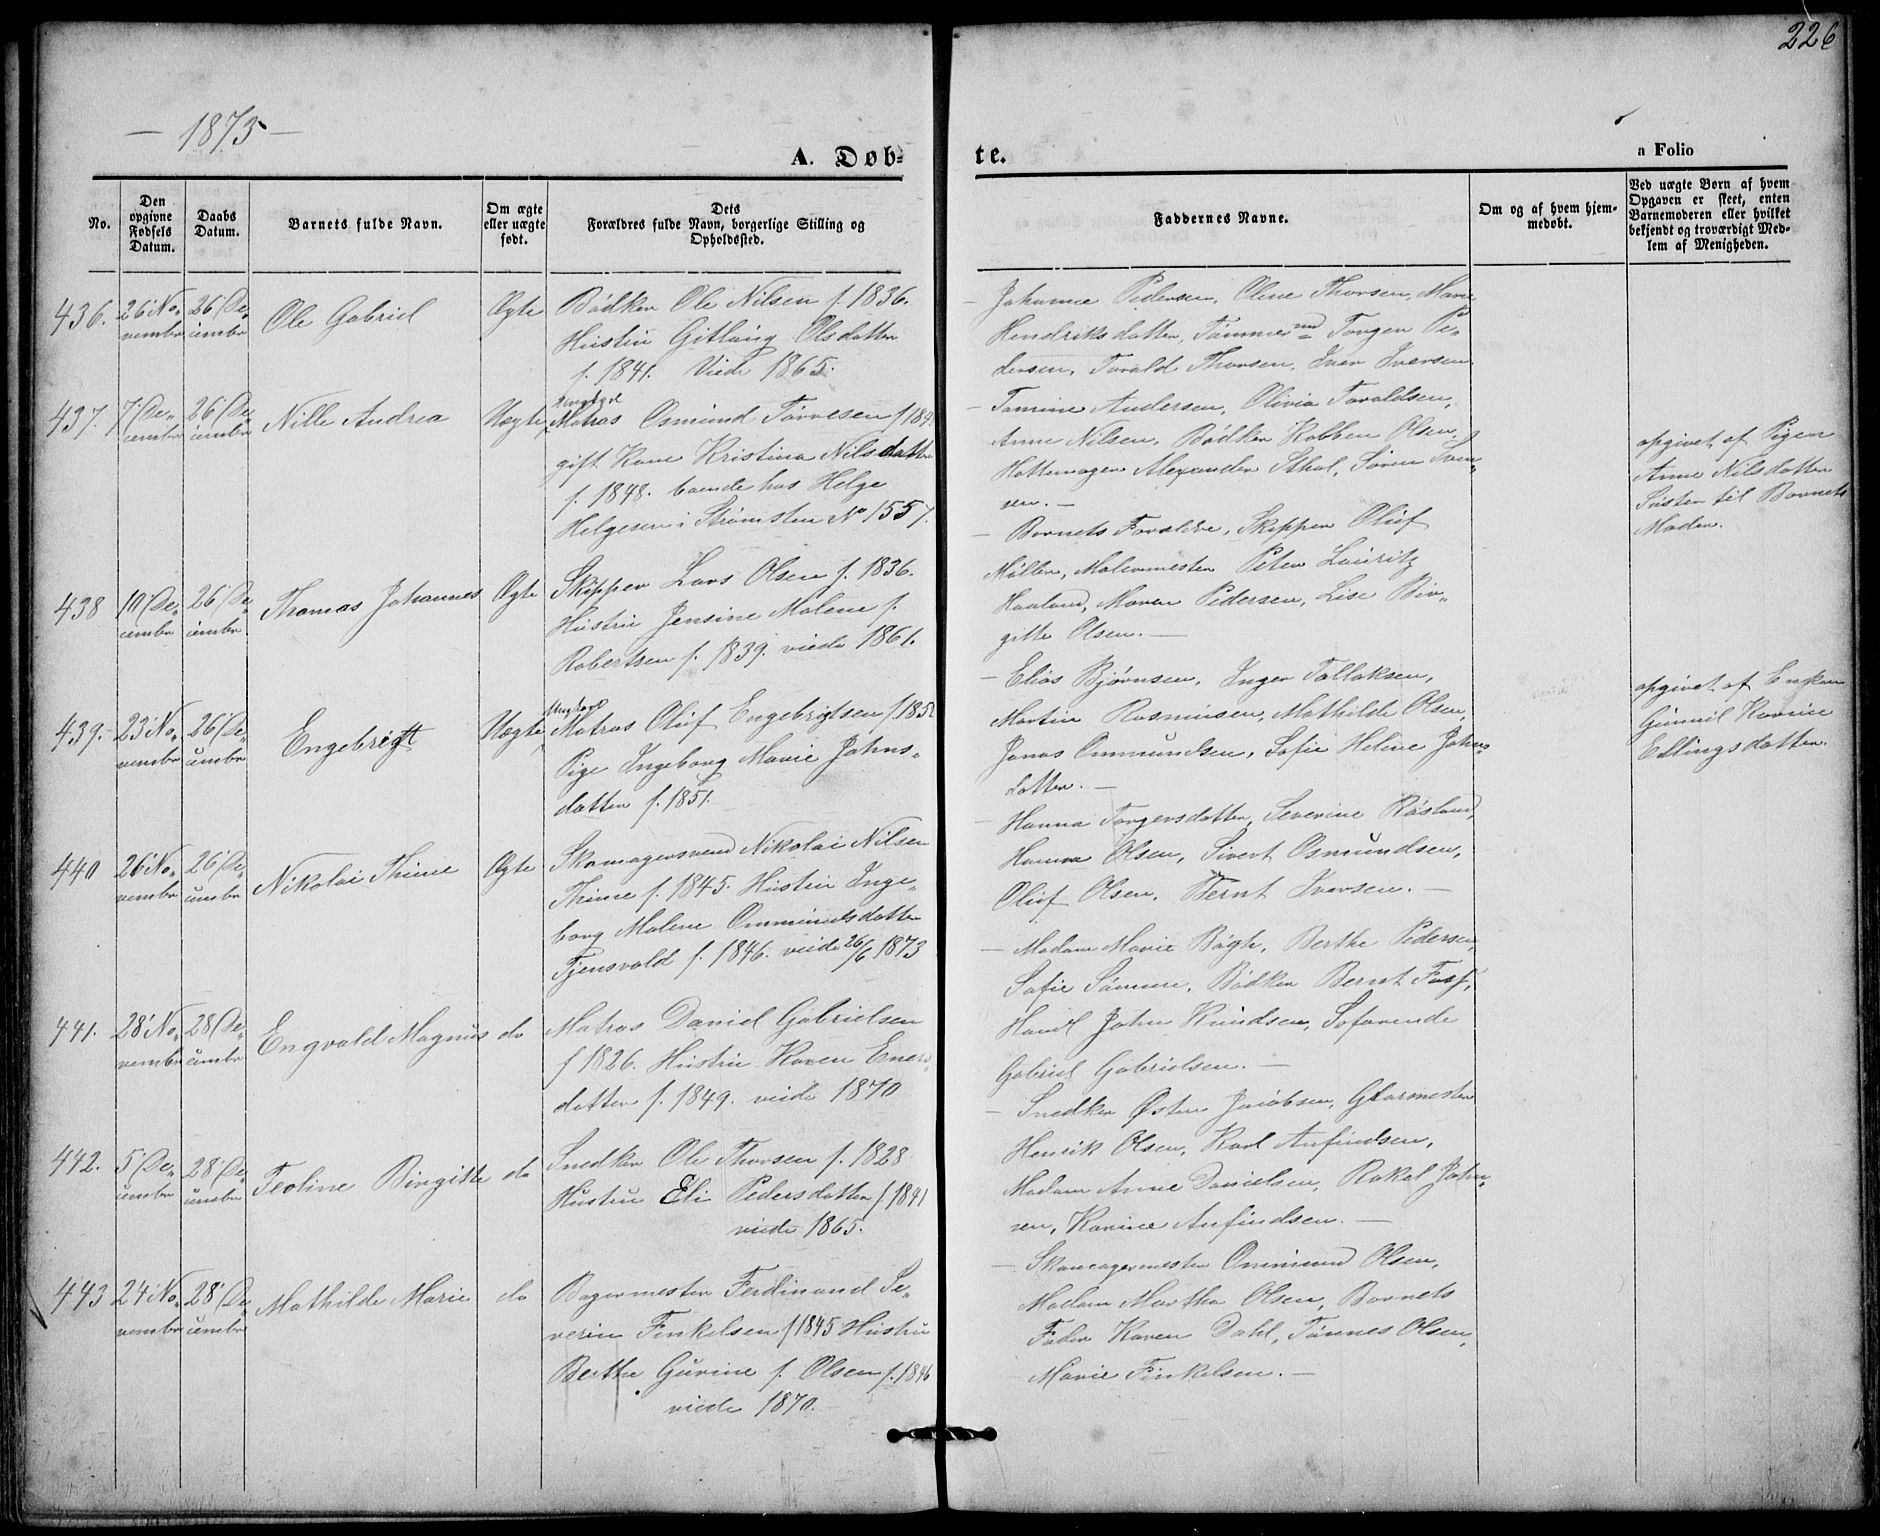 226
— 1873 —
A. Døb-
te.
a Folio
No.
Den opgivne Fødsels Datum.
Daabs Datum.
Barnets fulde Navn.
Om ægte eller uægte født.
Dets Forældres fulde Navn, borgerlige Stilling og Opholdssted.
Faddernes Navne.
Om og af hvem hjemmedøbt.
Ved uægte Børn af hvem Opgaven er skeet, enten Barnemoderen eller hvilket bekjendt og troværdigt Medlem af Menigheden.
436. 26 November 26 December Ole Gabriel Ægte
Bødker Ole Nilsen f. 1836.
Hustru Gitlaug Olsdatter
f. 1841. Viede 1865.
Johanne Pedersen, Olene Thorsen, Marie
Hendriksdatter, Tømmermd Torger Pe-
dersen, Torald Thorsen, Iver Iversen
437. 7 December 26 December Nille Andrea Uægte
Ungkarl
Matros Osmund Tørresen f 184
gift Kone Kristina Nilsdatter
f. 1848. boende hos Helge
Helgesen i Strømsten No 1557.
— Tomine Andersen, Olivia Toraldsen,
Anne Nilsen, Bødker Kobben Olsen,
Hattemager Alexander Sthal, Søren Iver-
sen. —
opgivet af Pigen
Anne Nilsdatter
Søster til Barnets
Moder.
438 10 December 26 December Thomas Johannes Ægte
Skipper Lars Olsen f. 1836.
Hustru Jensine Malene f.
Robertsen f. 1839. viede 1861.
— Barnets Forældre, Skipper Oluf
Møller, Malermester Peter Lauritz
Haaland, Maren Pedersen, Lise Bir-
gitte Olsen. —
439. 23 November 26 December Engebrigt Uægte
Ungkarl
Matros Oluf Engebrigtsen f 185
Pige Ingeborg Marie Johns-
datter f. 1851.
— Elias Bjørnsen, Inger Tallaksen,
Martin Rasmusen, Mathilde Olsen,
Jonas Ommundsen, Sofie Heline Johns-
datter. —
opgivet af Enken
Gunnil Karine
Ellingsdatter.
440 26 November 26 December Nikolai Thime Ægte
Skomagersvend Nikolai Nilsen
Thime f. 1845. Hustru Inge-
borg Malene Ommundsdatter
Tjensvold f. 1846. viede 26/6 1873
— Hanna Torgersdatter, Severine Røsland,
Hanna Olsen, Sivert Osmundsen,
Oluf Olsen, Bernt Iversen. —
441. 28 November 28 December Engvald Magnus do
Matros Daniel Gabrielsen
f 1826. Hustru Karen Eners-
datter f. 1849. viede 1870
— Madam Marie Bøgh, Berthe Pedersen,
Sofie Sømme, Bødker Bernt Foss,
Handl John Knudsen, Søfarende
Gabriel Gabrielsen. —
442. 5 December 28 December Teoline Birgitte do
Snedker Ole Thorsen f. 1828
Hustru Eli Pedersdatter f 1841
viede 1865.
— Snedker Østen Jacobsen, Glarmester
Henrik Olsen, Karl Anfindsen,
Madam Anne Danielsen, Rakel John-
sen, Karine Anfindsen. —
443 24 November 28 December Mathilde Marie do
Bagermester Ferdinand Se-
verin Finkelsen f 1845 Hustru
Berthe Gurine f. Olsen f. 1846
viede 1870.
— Skomagermester Ommund Olsen,
Madam Martha Olsen, Barnets
Fader Karen Dahl, Tønnes Olsen,
Marie Finkelsen. —